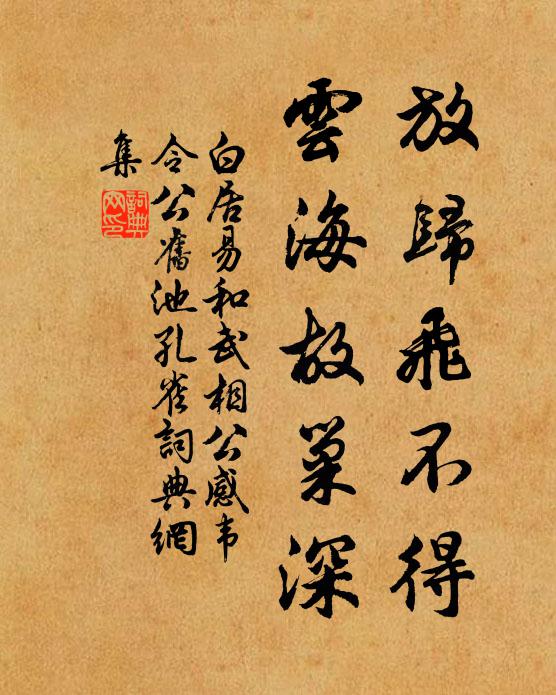 放歸飛不得
雲海故巢深
白居易和武相公感韦
令公舊池孔雀詞典網
集
詞典
网印